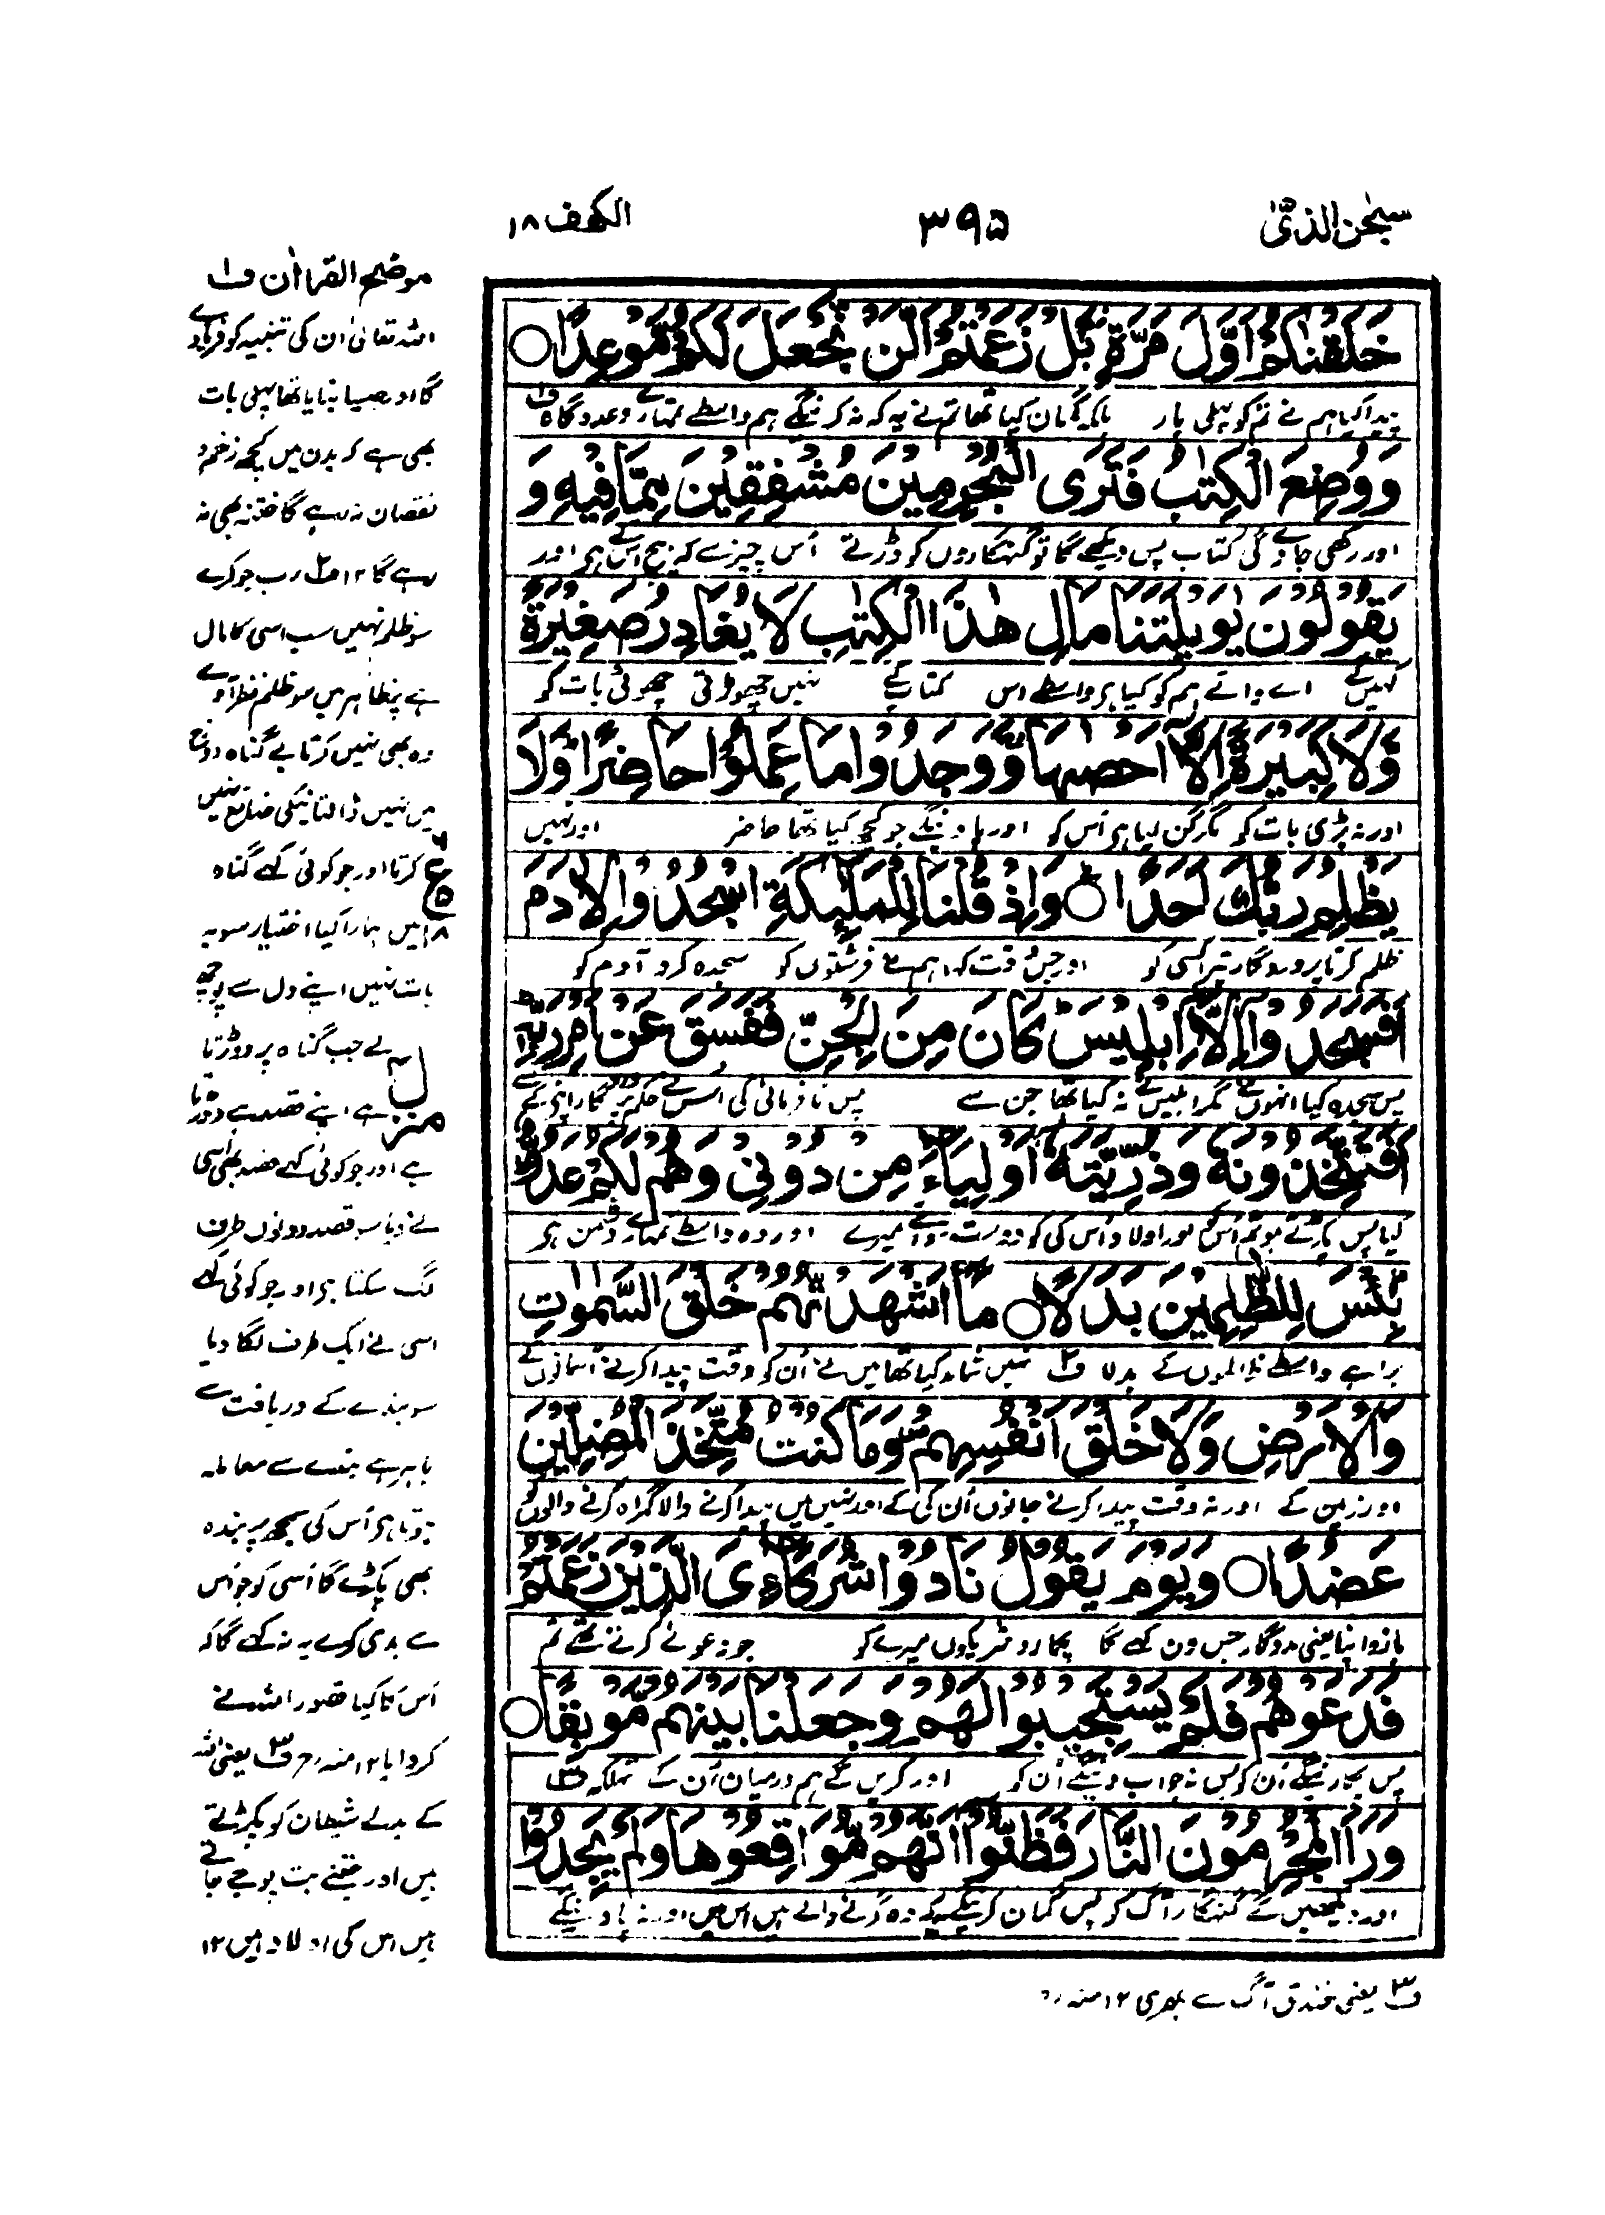 سبحٰن الذیٓ ۳۹۵ الکهف ۱۸
خَلَقْنٰكُمْ اَوَّلَ مَرَّةٍۭ بَلْ زَعَمْتُمْ اَلَّنْ نَّجْعَلَ لَكُمْ مَّوْعِدًا ○
پیدا کیا ہم نے تم کو پہلی بار بلکہ گمان کیا تھا تم نے یہ کہ نہ کرینگے ہم واسطے تمہارے وعدہ گاہ ف۱
وَوُضِعَ الْكِتٰبُ فَتَرَى الْمُجْرِمِيْنَ مُشْفِقِيْنَ مِمَّا فِيْهِ وَ
اور رکھی جاوے گی کتاب پس دیکھے گا تو گنہگاروں کو ڈرتے اُس چیز سے کہ بیچ اس کے ہی اور
يَقُوْلُوْنَ يٰوَيْلَتَنَا مَالِ هٰذَا الْكِتٰبِ لَا يُغَادِرُ صَغِيْرَةً
کہیں گے اے وائے ہم کو کیا ہی واسطے اس کتاب کے نہیں چھوڑتی چھوٹی بات کو
وَّلَا كَبِيْرَةً اِلَّآ اَحْصٰىهَا ۚ وَوَجَدُوْا مَا عَمِلُوْا حَاضِرًا ؕ وَلَا
اور نہ بڑی بات کو مگر گن لیا ہی اُس کو اور پاوینگے جو کچھ کیا تھا حاضر اور نہیں
يَظْلِمُ رَبُّكَ اَحَدًا ○ وَاِذْ قُلْنَا لِلْمَلٰٓئِكَةِ اسْجُدُوْا لِاٰدَمَ
ظلم کرتا پروردگار تیرا کسی کو اور جس وقت کہا ہم نے فرشتوں کو سجدہ کرو آدم کو
فَسَجَدُوْٓا اِلَّآ اِبْلِيْسَ ؕ كَانَ مِنَ الْجِنِّ فَفَسَقَ عَنْ اَمْرِ رَبِّهٖ ؕ
پس سجدہ کیا انہوں نے مگر ابلیس نے نہ کیا تھا جن سے پس نافرمانی کی اس نے حکم پروردگار اپنے کے سے
اَفَتَتَّخِذُوْنَهٗ وَذُرِّيَّتَهٗٓ اَوْلِيَآءَ مِنْ دُوْنِيْ وَهُمْ لَكُمْ عَدُوٌّ ؕ
کیا پس پکڑتے ہو تم اُس کو اور اولاد اُس کی کو دوست سوائے میرے اور وہ واسطے تمہارے دشمن ہی
بِئْسَ لِلظّٰلِمِيْنَ بَدَلًا ○ مَآ اَشْهَدْتُّهُمْ خَلْقَ السَّمٰوٰتِ
برا ہے واسطے ظالموں کے بدلا ف۲ نہیں شاہد کیا تھا میں نے اُن کو وقت پیدا کرنے آسمانوں کے
وَالْاَرْضِ وَلَا خَلْقَ اَنْفُسِهِمْ ۠ وَمَا كُنْتُ مُتَّخِذَ الْمُضِلِّيْنَ
اور زمین کے اور نہ وقت پیدا کرنے جانوں اُن کی کے اور نہیں میں پیدا کرنے والا گمراہ کرنے والوں کو
عَضُدًا ○ وَيَوْمَ يَقُوْلُ نَادُوْا شُرَكَآءِيَ الَّذِيْنَ زَعَمْتُمْ
بازو اپنا یعنی مددگار جس دن کہے گا پکارو شریکوں میرے کو جو دعوٰے کرتے تھے تم
فَدَعَوْهُمْ فَلَمْ يَسْتَجِيْبُوْا لَهُمْ وَجَعَلْنَا بَيْنَهُمْ مَّوْبِقًا ○
پس پکارینگے اُن کو پس نہ جواب دینگے اُن کو اور کریں گے ہم درمیان اُن کے تہلکہ ف۳
وَرَاَ الْمُجْرِمُوْنَ النَّارَ فَظَنُّوْٓا اَنَّهُمْ مُّوَاقِعُوْهَا وَلَمْ يَجِدُوْا
اور دیکھیں گے گنہگار آگ کو پس گمان کرینگے کہ وہ گرنے والے ہیں اس میں اور نہ پاوینگے
موضح القراٰن ف۱
اللہ تعالیٰ ان کی تنبیہ کو فرماوے
گا اور جیسا بنایا تھا پہلی بات
بھی ہے کہ بدن میں کچھ زخم و
نقصان نہ رہے گا ختنہ بھی نہ
رہے گا ۱۲ ف۲ رب جو کرے
سو ظلم نہیں سب اسی کا مال
ہے پر ظاہر میں سو ظلم نظر آوے
وہ بھی نہیں کرتا بے گناہ دوزخ
میں نہیں ڈالتا نیکی ضائع نہیں
کرتا اور جو کوئی کہے گناہ
میں ہمارا کیا اختیار سو یہ
بات نہیں اپنے دل سے پوچھ
لے جب گناہ پر دوڑتا
ہے اپنے قصد سے دوڑتا
ہے اور جو کوئی کہے قصد بھی اُسی
نے دیا سو قصد دونوں طرف
لگ سکتا ہی اور جو کوئی کہے
اسی نے ایک طرف لگا دیا
سو بندے کے دریافت سے
باہر ہے بندے سے معاملہ
ہوتا ہی اُس کی سمجھ پر بندہ
بھی پکڑے گا اُسی کو جو اُس
سے بدی کرے یہ نہ کہے گا کہ
اُس کا کیا قصور اللہ نے
کروایا ۱۲ منہ رح ف۳ یعنی اللہ
کے بدلے شیطان کو پکڑتے
ہیں اور جتنے بت پوجے جاتے
ہیں اس کی اولاد ہیں ۱۲
ع ۵ ۱۸
منزل
ف۳ یعنی خندق آگ سے بھری ۱۲ منہ رح